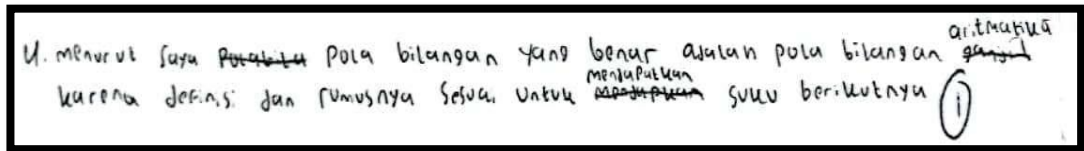 4. menurut saya pola bilangan yang benar adalah pola bilangan aritmatika
karena definisi dan rumusnya sesuai untuk mendapatkan suku berikutnya i